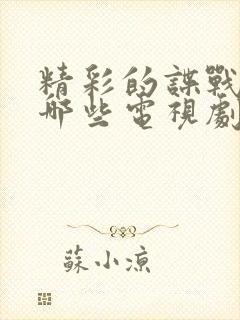 精彩的諜戰
哪些電視劇
蘇小涼